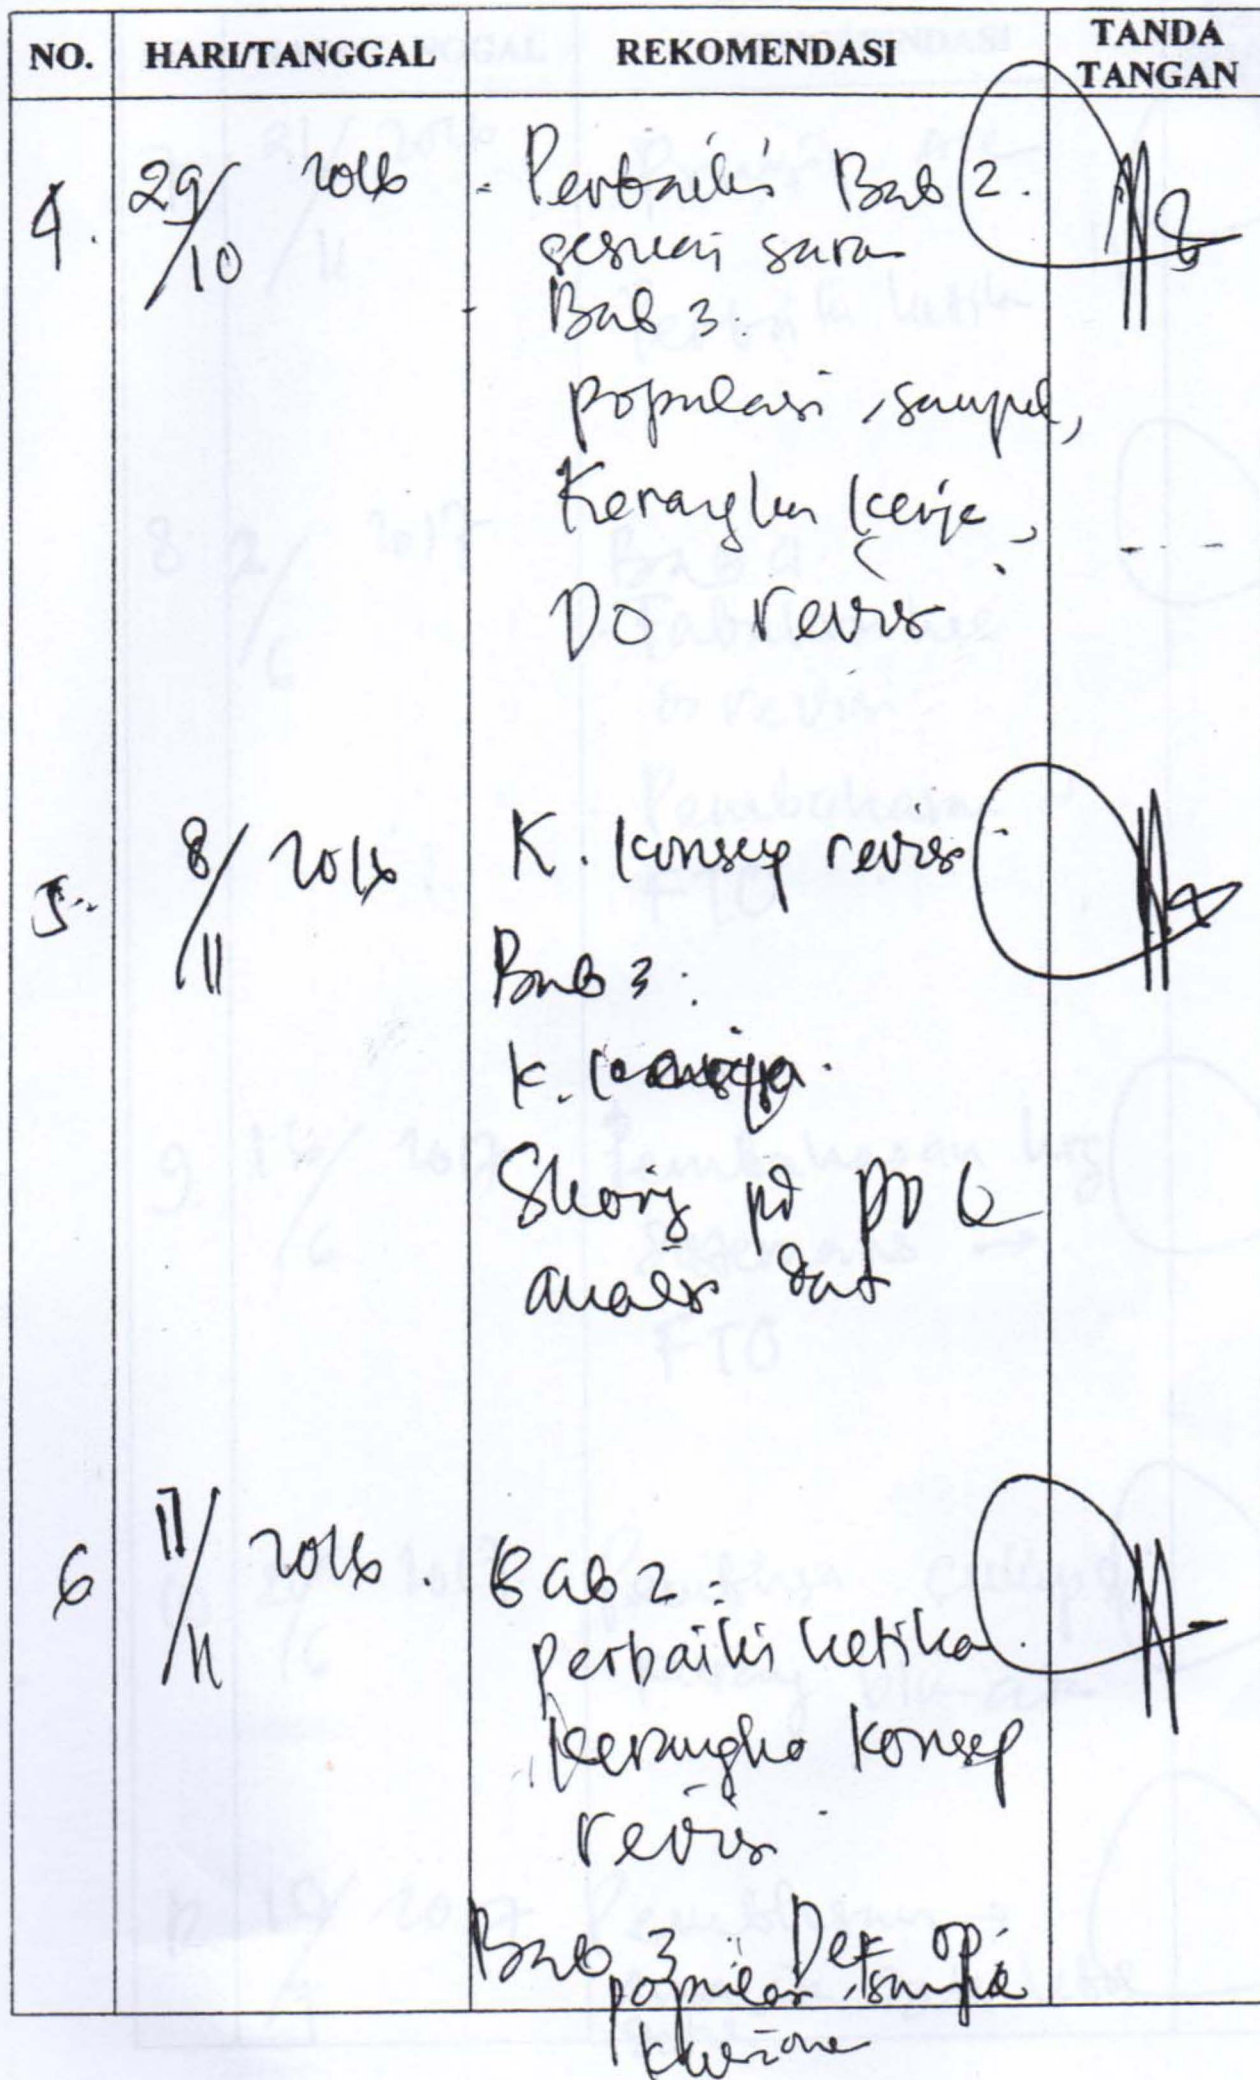 NO. HARI/TANGGAL REKOMENDASI TANDA TANGAN
4. 29/10 2016 - Perbaiki Bab 2.
sesuai saran
- Bab 3.
populasi, sampel,
Kerangka kerja,
DO revisi
5. 8/11 2016 K. konsep revisi
Bab 3.
K. kerja.
Skoring pd DO &
analisis dat
6 11/11 2016. Bab 2.
perbaiki ketika
kerangka konsep
revisi
Bab 3 Def op.
populasi, sampel